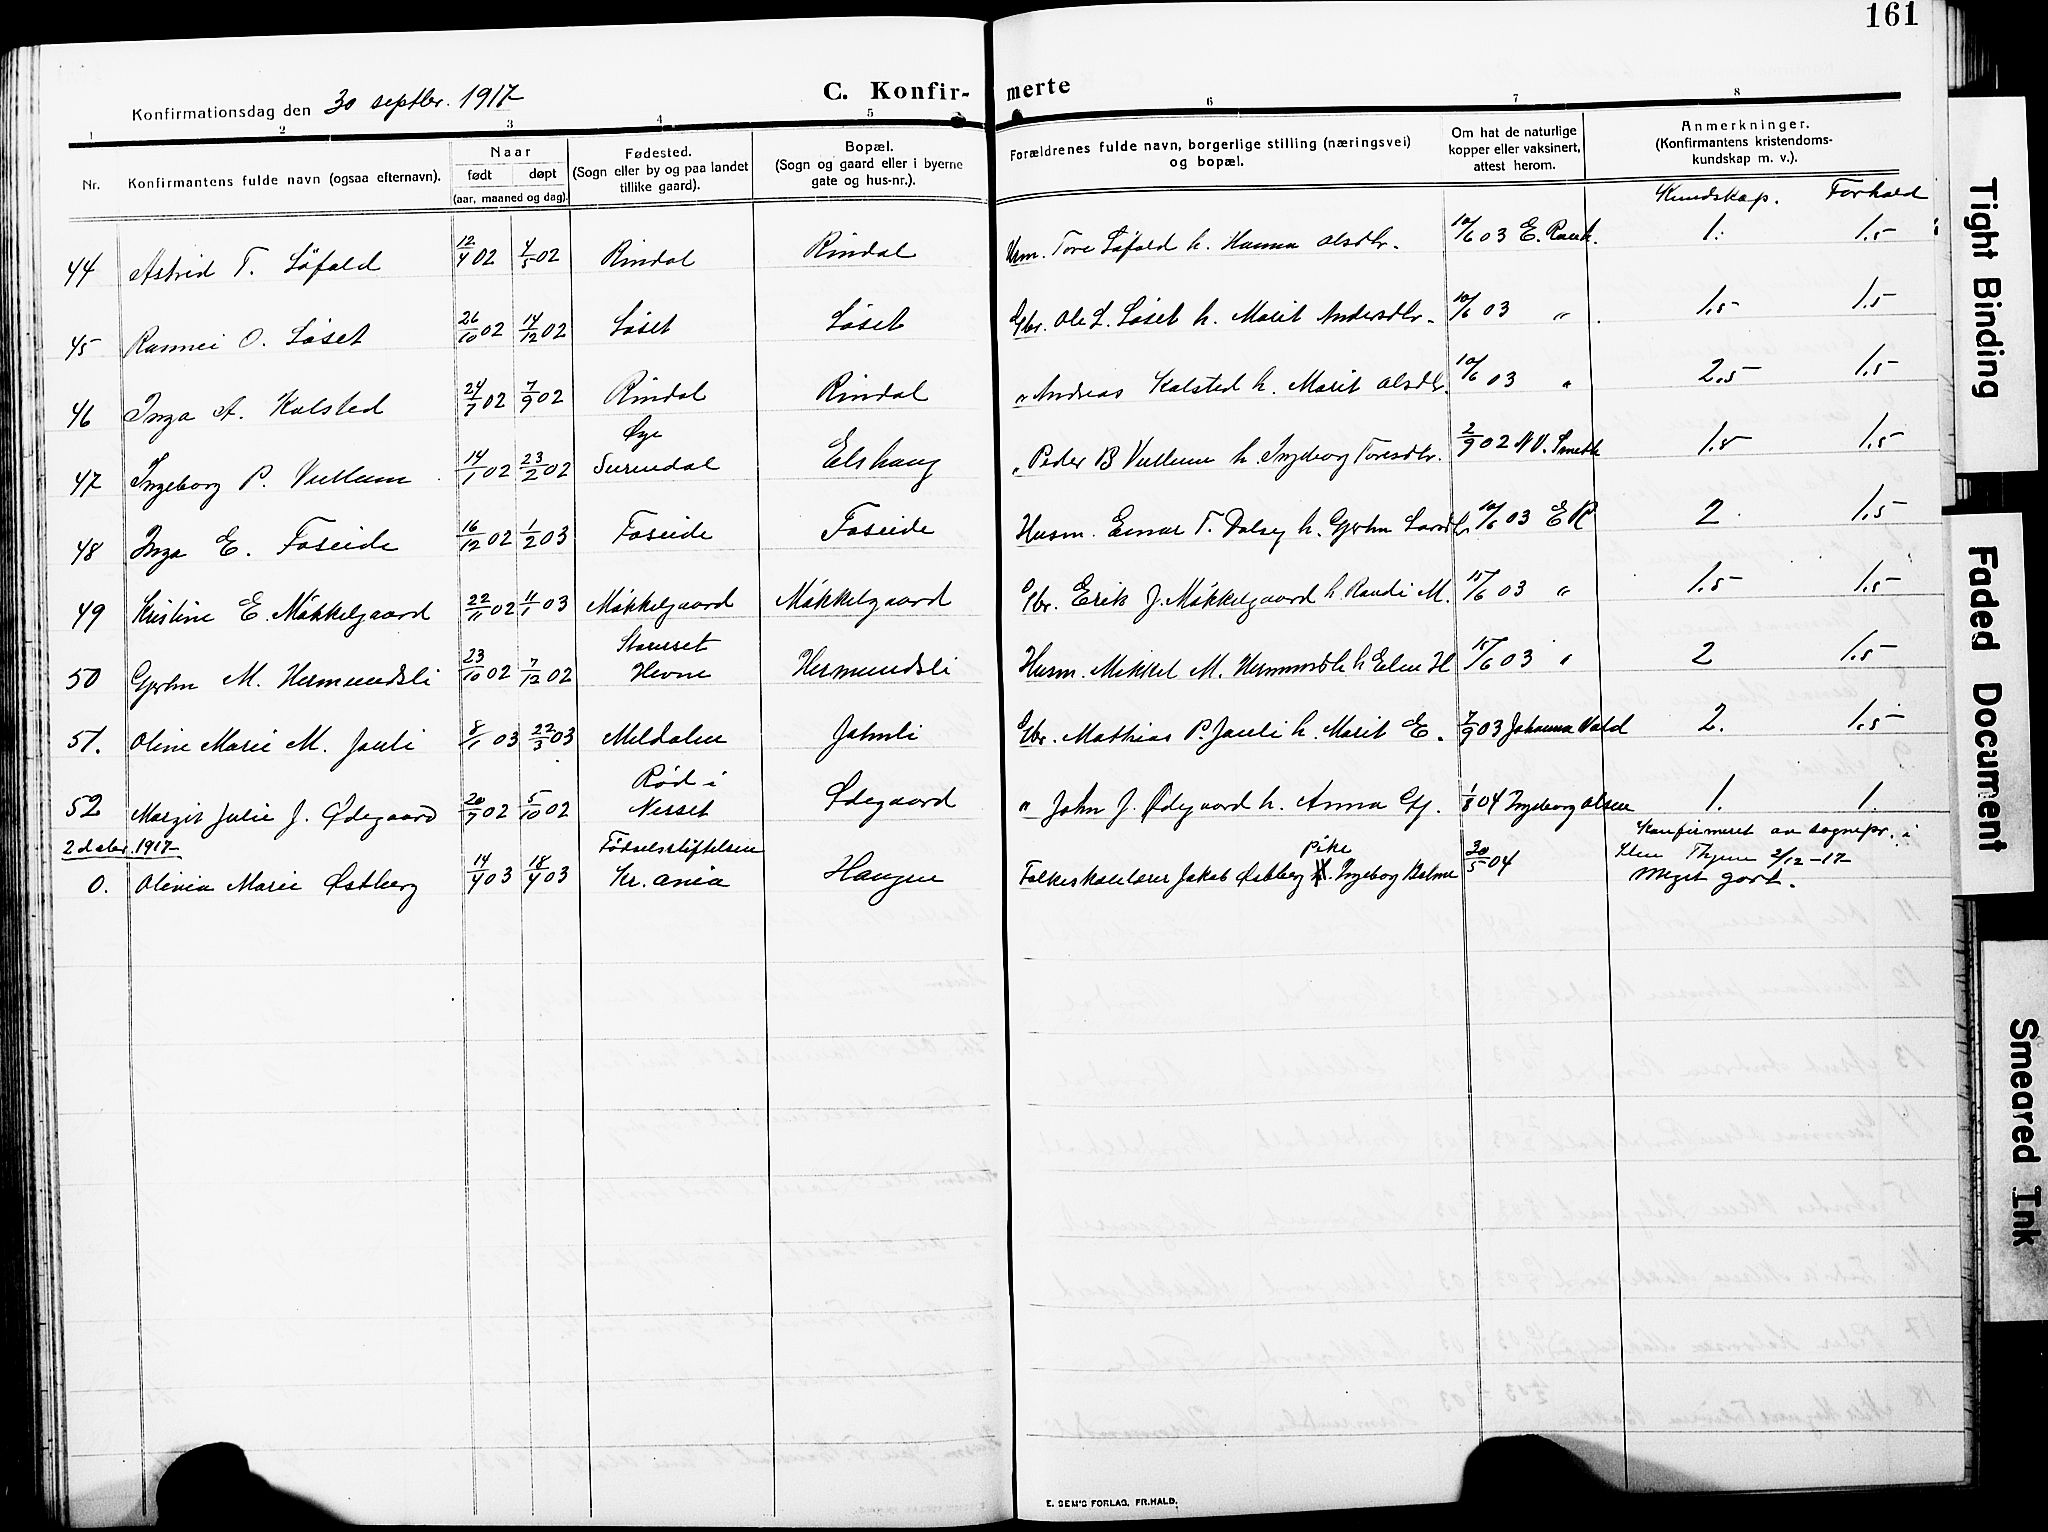 161
Konfirmationsdag den 30 septbr. 1917
C. Konfirmerte
1 2 3 4 5 6 7 8
Nr.
Konfirmantens fulde navn (ogsaa efternavn).
Naar
født døpt
(aar, maaned og dag).
Fødested.
(Sogn eller by og paa landet
tillike gaard).
Bopæl.
(Sogn og gaard eller i byerne
gate og hus-nr.).
Forældrenes fulde navn, borgerlige stilling (næringsvei)
og bopæl.
Om hat de naturlige
kopper eller vaksinert,
attest herom.
Anmerkninger.
(Konfirmantens kristendoms-
kundskap m. v.).
Kundskap. Forhold
44 Astrid T. Löfald 12/4 02 4/5 02 Rindal Rindal Tore Löfald h. Hanna Olsdtr. 10/6 03 E. 1. 1.5
45 O. Løset 26/10 02 14/12 02 Løset Løset Gbr. Ole L. Løset h. Marit Andersdtr. 10/6 03 " 1.5 1.5
46 Inga A. Kalsted 24/7 02 7/9 02 Rindal Rindal " Andreas Kalsted h. Marit Olsdtr. 10/6 03 " 2.5 1.5
47 Ingeborg P. Vullum 14/1 02 23/2 02 Øye Surendal Elshaug " Peder B Vullum h. Ingeborg Toresdtr. 2/9 02 1.5 1.5
48 Inga E. Foseide 16/12 02 1/2 03 Foseide Foseide Husm. Einar T. Dalseg h. 10/6 03 E R 2 1.5
49 Kristine E. Møkkelgaard 22/11 02 11/1 03 Møkkelgaard Møkkelgaard Gbr. Erik J. Møkkelgaard h. Randi M. 15/6 03 " 1.5 1.5
50 M. Hermundsli 23/10 02 7/12 02 Hevne Hermundsli Husm. Mikkel M. h Elen H 15/6 03 " 2 1.5
51. Oline Marie M. Janli 8/1 03 22/3 03 Meldalen Jahnli Gbr. Mathias P. Janli h. Marit E. 7/9 03 Johanna Vald 2. 1.5
52 Margit Julie J. Ødegaard 20/7 02 5/10 02 Rød i Nesset Ødegaard " John J. Ødegaard h. Anna 1/8 04 Ingeborg Olsen 1. 1.
2 decbr. 1917
0. Olivia Marie Østberg 14/4 03 18/4 03 Fødselsstiftelsen Kr.ania Haugen Folkeskolelærer Jakob Østberg pike Ingeborg Holme 30/5 04 Konfirmeret av sognepr. i
2/12-17
Meget godt.
E. SEM'S FORLAG, FR.HALD.
Tight Binding
Faded Document
Smeared Ink